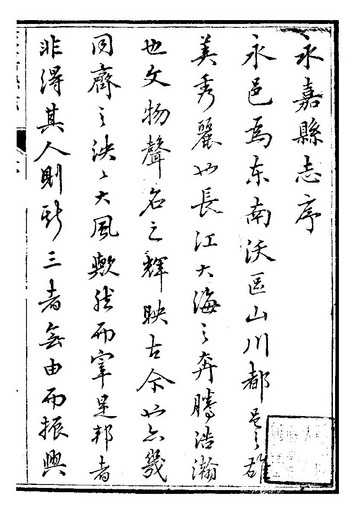 永嘉縣志序
永邑為东南沃區山川都邑之雄
美秀麗也長江大海之奔騰浩瀚
也文物聲名之輝映古今也亦幾
同齊之泱〻大風歟然而宰是邦者
非得其人則斯三者無由而振興